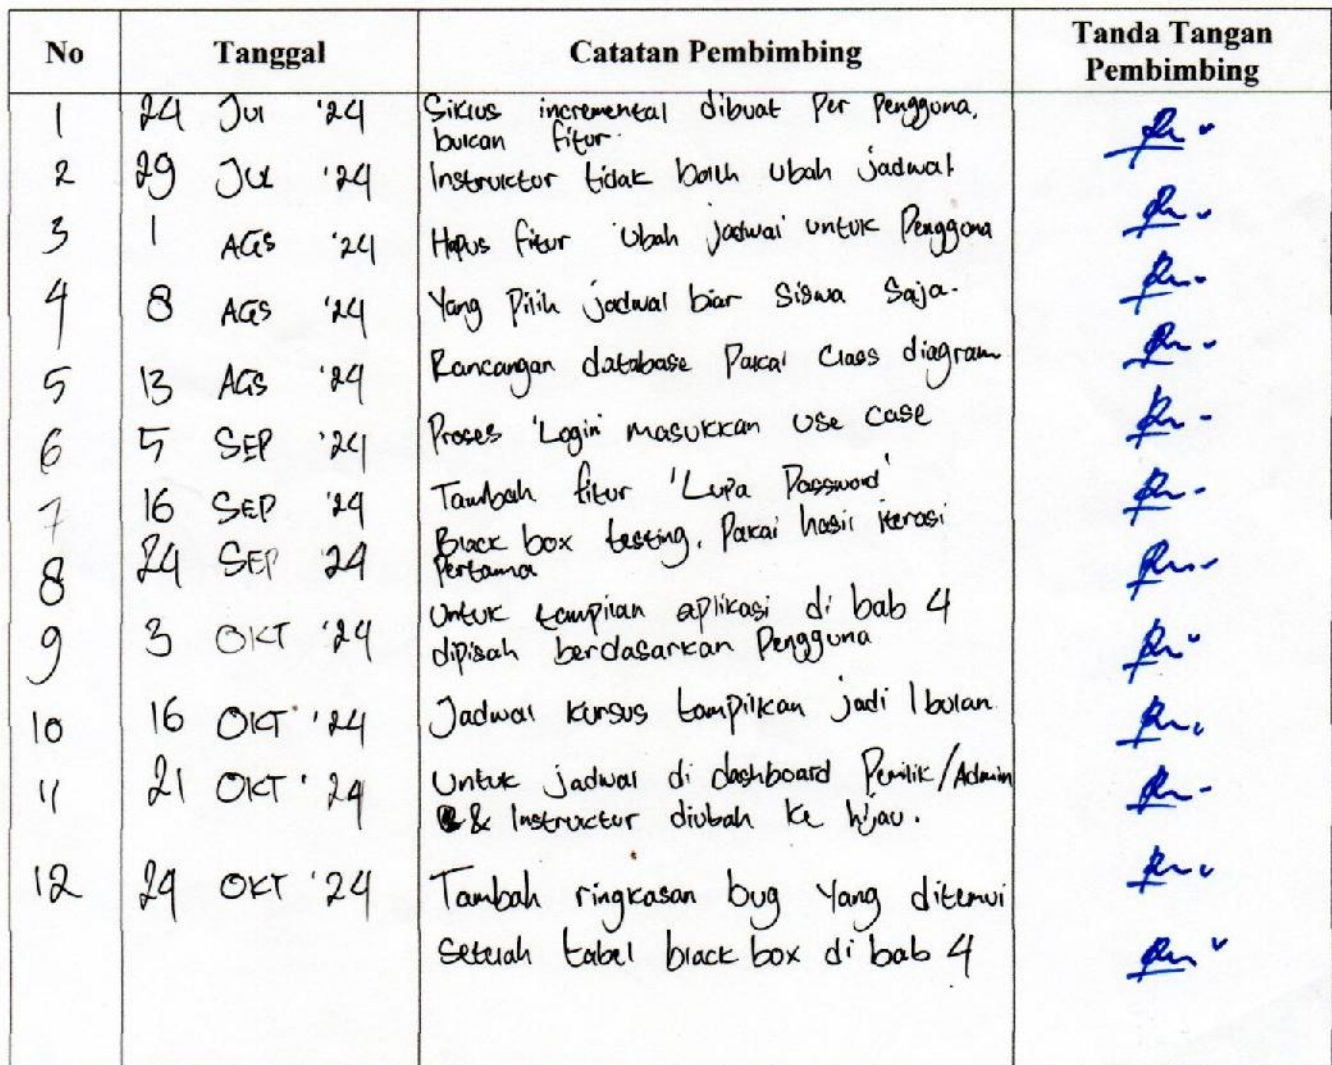 No Tanggal Catatan Pembimbing Tanda Tangan
Pembimbing
1 24 Jul '24 Siklus incremental dibuat per pengguna,
bukan fitur.
2 29 Jul '24 Instruktor tidak boleh ubah jadwal
3 1 AGS '24 Hapus fitur 'Ubah jadwal untuk Pengguna
4 8 AGS '24 Yang Pilih jadwal biar Siswa Saja.
5 13 AGS '24 Rancangan database Pakai Class diagram
6 5 SEP '24 Proses 'Login' masukkan use case
7 16 SEP '24 Tambah fitur 'Lupa Password'
8 24 SEP 24 Black box testing, Pakai hasil iterasi
Pertama
9 3 OKT '24 Untuk tampilan aplikasi di bab 4
dipisah berdasarkan Pengguna
10 16 OKT '24 Jadwal kursus tampilkan jadi 1 bulan
11 21 OKT '24 Untuk jadwal di dashboard Pemilik/Admin
& Instruktor diubah ke hijau.
12 24 OKT '24 Tambah ringkasan bug Yang ditemui
setelah tabel black box di bab 4